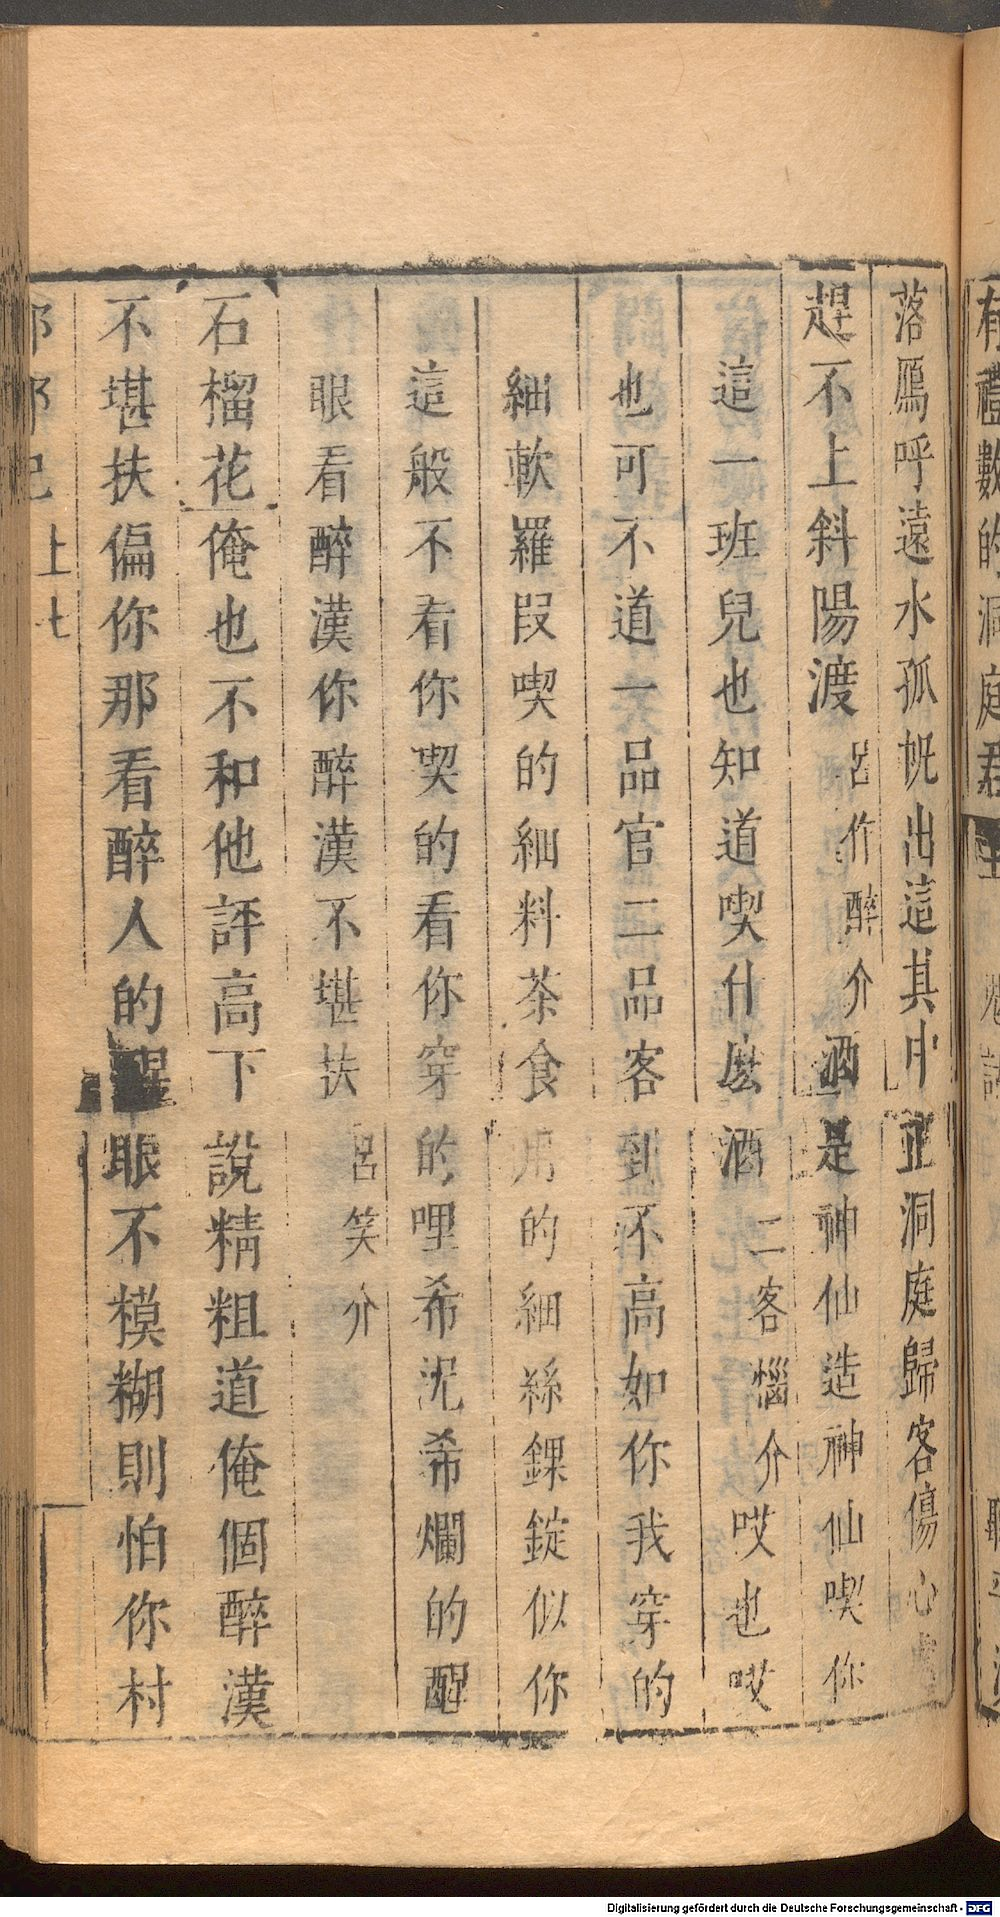 有禮數的洞庭君
落鴈呼遠水孤帆出這其中正洞庭歸客傷心處
趕不上斜陽渡呂作醉介酒是神仙造神仙喫你
這一班兒也知道喫什麽酒二客惱介哎也哎
也可不道一品官二品客到不高如你我穿的
細軟羅段喫的細料茶食用的細絲錁錠似你
這般不看你喫的看你穿的哩希泥希爛的醒
眼看醉漢你醉漢不堪扶呂笑介
石榴花俺也不和他評高下說精粗道俺個醉漢
不堪扶偏你那看醉人的醒眼不模糊則怕你村
上七
Digitalisierung gefördert durch die Deutsche Forschungsgemeinschaft - DFG